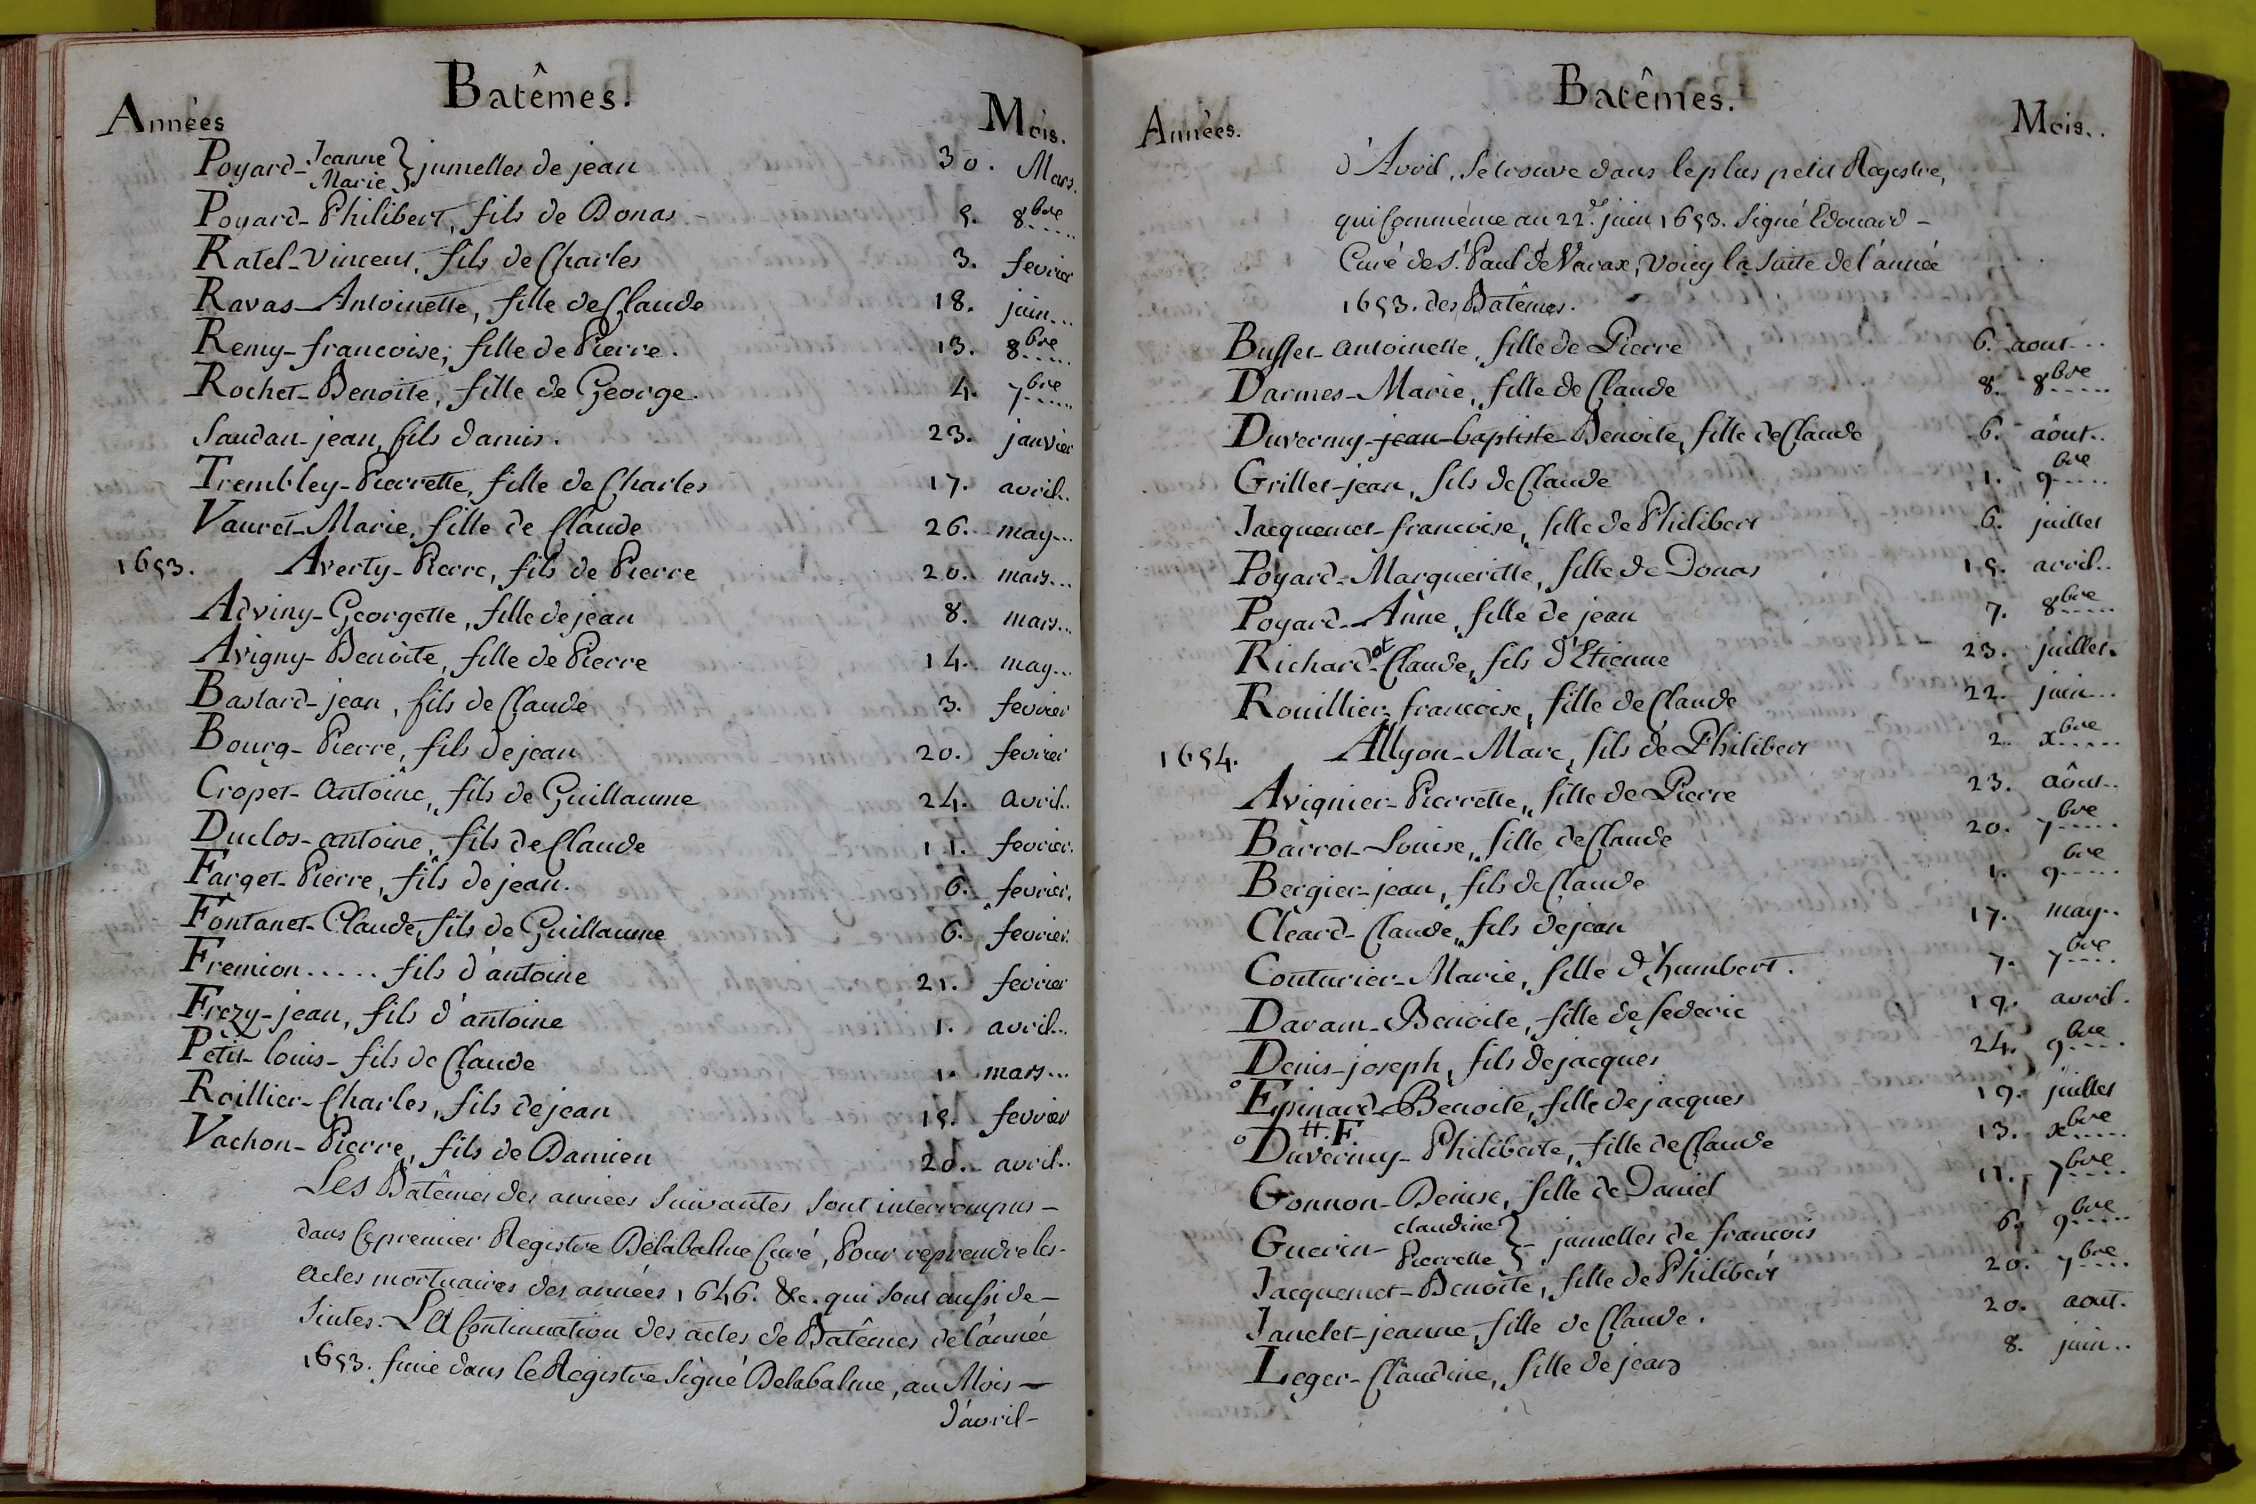 Batêmes.
Années Mois.
Poyard- Jeanne Marie } jumelles de jean 30. Mars.
Poyard- Philibert, fils de Donas 5. 8bre
Ratel- Vincent, fils de Charles 3. fevrier
Ravas- Antoinette, fille de Claude 18. juin...
Remy- francoise, fille de Pierre. 13. 8bre
Rochet- Benoite, fille de George. 4. 7bre
Saudan- jean, fils damis. 23. janvier
Trembley- Pierrette, fille de Charles 17. avril..
Vauret- Marie, fille de Claude 26. may...
1653. Averty- Pierre, fils de Pierre 20. mars...
Adviny- Georgette, fille de jean 8. mars...
Avigny- Benoite, fille de Pierre 14. may...
Bastard- jean, fils de Claude 3. fevrier
Bourg- Pierre, fils de jean 20. fevrier
Cropet- antoine, fils de Guillaume 24. avril..
Duclos- antoine, fils de Claude 11. fevrier.
Farget- Pierre, fils de jean. 6. fevrier.
Fontanet- Claude, fils de Guillaume 6. fevrier.
Fremion..... fils d'antoine 21. fevrier
Frezy- jean, fils d'antoine 1. avril...
Petit- louis- fils de Claude 1. mars...
Roillier- Charles, fils de jean 15. fevrier
Vachon- Pierre, fils de Damien 20. avril..
Les Batêmes des années suivantes sont interrompus-
dans ce premier Registre Delabalme Curé, Pour reprendre les-
actes mortuaires des années 1646. &c. qui sont aussi de-
suites. La Continuation des actes de Batêmes de l'année
1653. finie dans le Registre signé Delabalme, au Mois-
d'avril-
Batêmes.
Années. Mois..
d'Avril, se trouve dans le plus petit Registre,
qui commence au 22e. juin 1653. signé Edouard-
Curé de St. Paul de Varax, voicy la suite de l'année
1653. des Batêmes.
Buffet- antoinette, fille de Pierre 6. aout...
Darmes- Marie, fille de Claude 8. 8bre
Duverny- jean-baptiste- Benoite, fille de Claude 6. aôut..
Grillet- jean, fils de Claude 1. 9bre
Jacquemet- francoise, fille de Philibert 6. juillet
Poyard- Margueritte, fille de Donas 15. avril..
Poyard- Anne, fille de jean 7. 8bre
Richardot- Claude, fils d'Etienne 23. juillet.
Rouillier- francoise, fille de Claude 22. juin...
1654. Allyon- Marc, fils de Philibert 2. xbre
Avignier- Pierrette, fille de Pierre 23. aôut..
Barrot- Louise, fille de Claude 20. 7bre
Bergier- jean, fils de Claude 1. 9bre
Cléard- Claude, fils de jean 17. may..
Couturier- Marie, fille d'humbert. 7. 7bre
Daram- Benoite, fille de federic 19. avril.
Denis- joseph, fils de jacques 24. 9bre
° Epinard- Benoite, fille de jacques 19. juillet
tt. F.
° Duverny- Philiberte, fille de Claude 13. xbre
Gonnon- Denise, fille de Daniel 11. 7bre
Guerin- claudine Pierrette } - jumelles de francois 6. 9bre
Jacquemet- Benoite, fille de Philibert 20. 7bre
Janclet- jeanne, fille de Claude. 20. aout.
Leger- Claudine, fille de jean 8. juin..